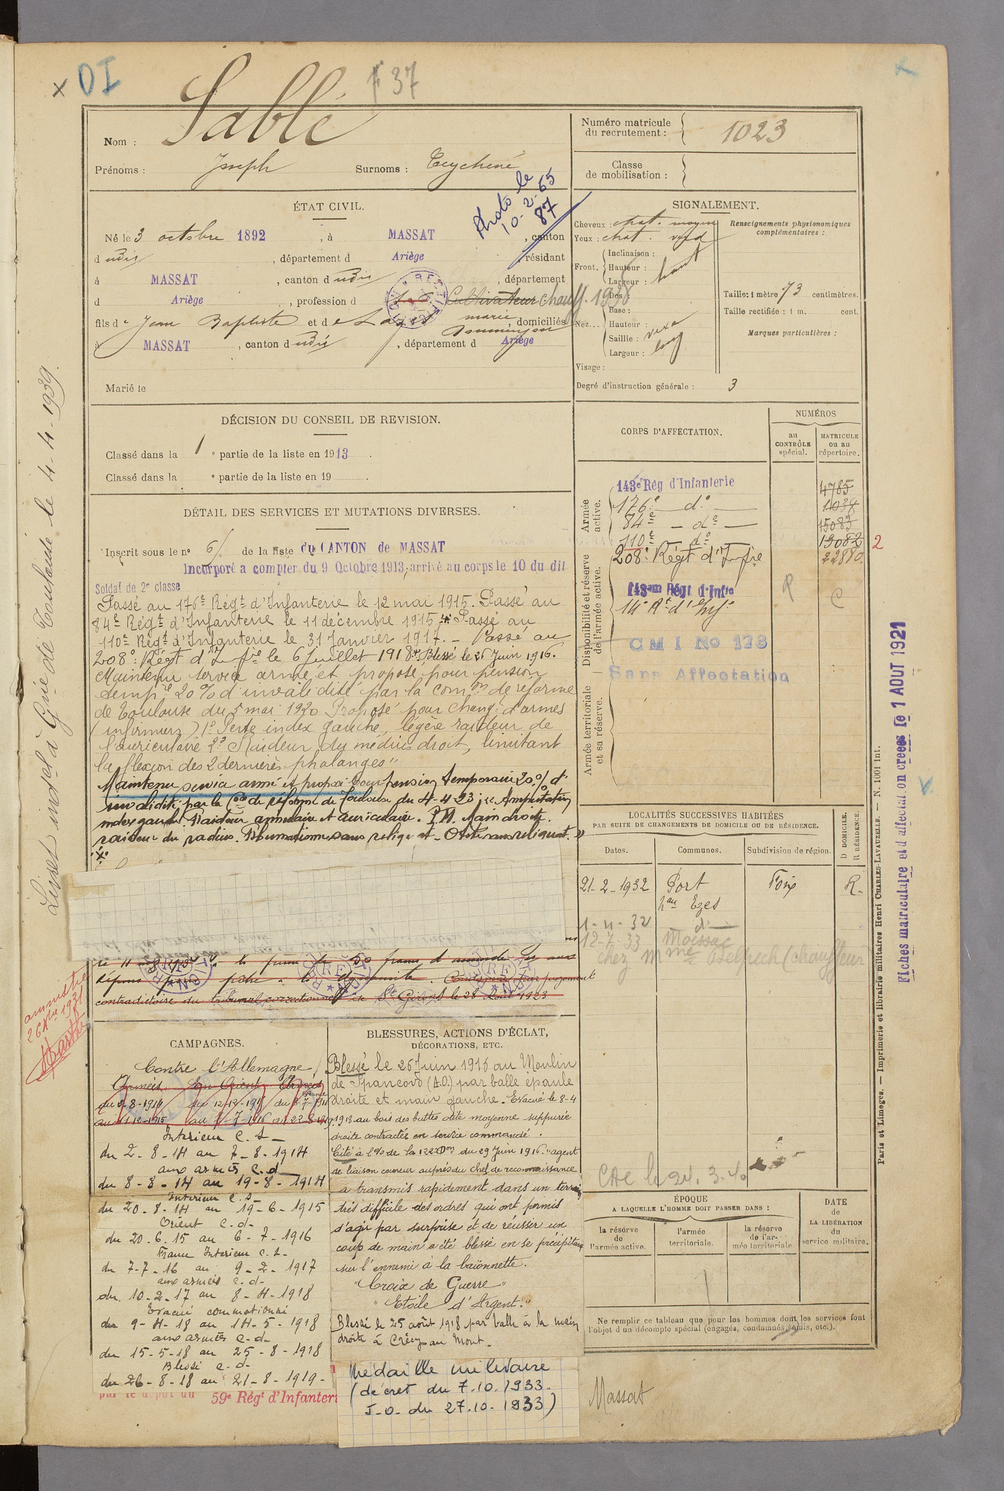 x DI
F 37
Nom : Sablé
Prénoms : Joseph Surnoms : Eychené
Photo le
10-2-65
87
Numéro matricule
du recrutement : 1023
Classe
de mobilisation :
ÉTAT CIVIL.
Né le 3 octobre 1892, à MASSAT, canton
d udis, département d Ariège, résidant
à MASSAT, canton d udis, département
d Ariège, profession d Cultivateur chauff. 1938
fils d e Jean Baptiste et d e Lagé marie Dominique, domiciliés
à MASSAT, canton d udis, département d Ariège
Marié le
SIGNALEMENT.
Cheveux : chat. moyen
Yeux : chat. verd
Front.
Inclinaison :
Hauteur : haut
Largeur :
Nez...
Base :
Hauteur :
Saillie : vexe
Largeur : long
Visage :
Renseignements physionomiques
complémentaires :
Taille : 1 mètre 73 centimètres.
Taille rectifiée : 1 m. cent.
Marques particulières :
Degré d'instruction générale : 3
DÉCISION DU CONSEIL DE REVISION.
Classé dans la 1 e partie de la liste en 1913
Classé dans la e partie de la liste en 19
DÉTAIL DES SERVICES ET MUTATIONS DIVERSES.
Inscrit sous le n° 6 de la liste du CANTON de MASSAT
Incorporé à compter du 9 Octobre 1913; arrivé au corps le 10 du dit
Soldat de 2e classe
Passé au 176e Régt d'Infanterie le 12 mai 1915. Passé au
84e Régt d'Infanterie le 11 décembre 1915. Passé au
110e Régt d'Infanterie le 31 Janvier 1917. – Passé au
208e Régt d'Inf.ie le 6 Juillet 1918. Blessé le 26 Juin 1916.
Maintenu service armé et proposé pour pension
temp.re 20 % d'invalidité par la Com.on de réforme
de Toulouse du 5 mai 1920. Proposé pour chang.t d'armes
(infirmier) 1° Perte index gauche, légère raideur de
l'auriculaire 2° Raideur du médius droit, limitant
la flexion des 2 dernières phalanges"
Maintenu service armé et proposé pour pension temporaire 20 % d'
invalidité par la Con de réforme de Toulouse du 4-4-23; 1° Amputation
index gauche. Raideur annulaire et auriculaire. 2° Main droite.
raideur du médius. Rhumatisme sans reliquat. Otite sans reliquat. "
contradictoire du tribunal correctionnel de St Girons le 28 Août 1923
CORPS D'AFFECTATION.
NUMÉROS
au
CONTRÔLE
spécial.
MATRICULE
ou au
répertoire.
Armée
active.
143e Rég d'Infanterie 4785
176e — do —
84e — do — 15083
110e do 15082 2
208e Régt d'Inf.ie 22810
Disponibilité et réserve
de l'armée active.
143eme Régt d'Infie
14e Rt d'Inf.ie
R C
CMI No 178
Sans Affectation
Armée territoriale
et sa réserve.
LOCALITÉS SUCCESSIVES HABITÉES
PAR SUITE DE CHANGEMENTS DE DOMICILE OU DE RÉSIDENCE.
Dates. Communes. Subdivision de région. D DOMICILE. R RÉSIDENCE.
21-2-1932 Port Foix R.
1-4-32 d
12-4 33 Moissac
chez Mme Delprech (chauffeur
CAMPAGNES.
Contre l'Allemagne
Intérieur C.S.
du 2-8-14 au 7-8-1914
aux armées C.d.
du 8-8-14 au 19-8-1914
Intérieur C.S.
du 20-8-14 au 19-6-1915
Orient C.d.
du 20-6-15 au 6-7-1916
France Intérieur C.S.
du 7-7-16 au 9-2-1917
aux armées C.d.
du 10-2-17 au 8-4-1918
Evacué commotionné
du 9-4-18 au 14-5-1918
aux armées C.d.
du 15-5-18 au 25-8-1918
Blessé C.d.
du 26-8-18 au 21-8-1919.
par le dépôt du 59e Régt d'Infanterie
BLESSURES, ACTIONS D'ÉCLAT,
DÉCORATIONS, ETC.
Blessé le 26 Juin 1916 au Moulin
de (A.O.) par balle épaule
droite et main gauche. Evacué le 8-4
1918 au bois des buttes otite moyenne suppurée
droite contractée en service commandé.
Cité à l'O. de la 122e Don du 29 Juin 1916. "agent
de liaison coureur auprès du chef de reconnaissance
a transmis rapidement dans un terrain
très difficile des ordres qui ont permis
d'agir par surprise et de réussir un
coup de main a été blessé en se précipitant
sur l'ennemi à la baïonnette.
"Croix de Guerre"
"Etoile d'Argent."
Blessé le 25 août 1918 par balle à la main
droite à Crécy-au-Mont.
Médaille militaire
(décret du 7.10.1933.
J.O. du 27.10.1933)
CAE le 24.3.40
ÉPOQUE
A LAQUELLE L'HOMME DOIT PASSER DANS :
la réserve
de
l'armée active.
l'armée
territoriale.
la réserve
de l'ar-
mée territoriale.
DATE
de
LA LIBÉRATION
du
service militaire.
Ne remplir ce tableau que pour les hommes dont les services font
l'objet d'un décompte spécial (engagés, condamnés, omis, etc.).
Massat
Livret ind.el à Gnie de Toulouse le 4-4-1939.
amnistié
Fiches matriculaire et d'affectation créées le 1 AOUT 1921
Paris et Limoges. — Imprimerie et librairie militaires Henri CHARLES-LAVAUZELLE. — N. 1001 int.